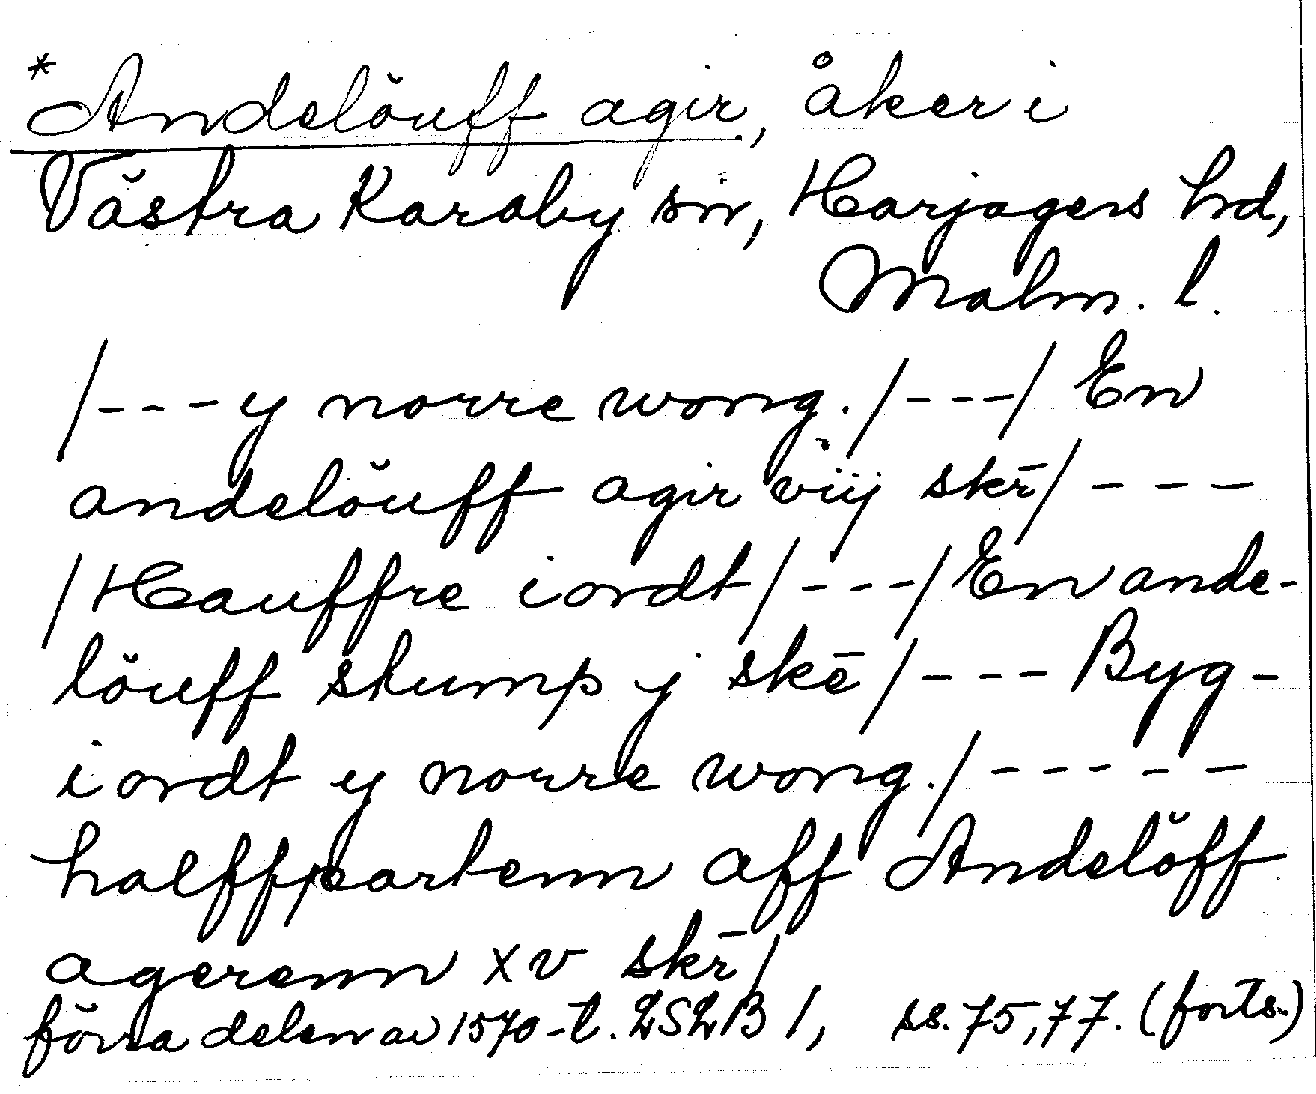 *Andelöuff agir, åker i
Västra Karaby sn, Harjagers hd,
Malm. l.
/---y norre wong./---/ En
andelöuff agir viij skr̄/ ---
/Hauffre iordt/---/En ande-
löuff stump j skē/---Byg-
iordt y norre wong./-----
halffpartenn aff Andelöff
agerenn xv skr̄/
förra delen av 1570-t. LSLB 1, ss. 75, 77. (forts.)